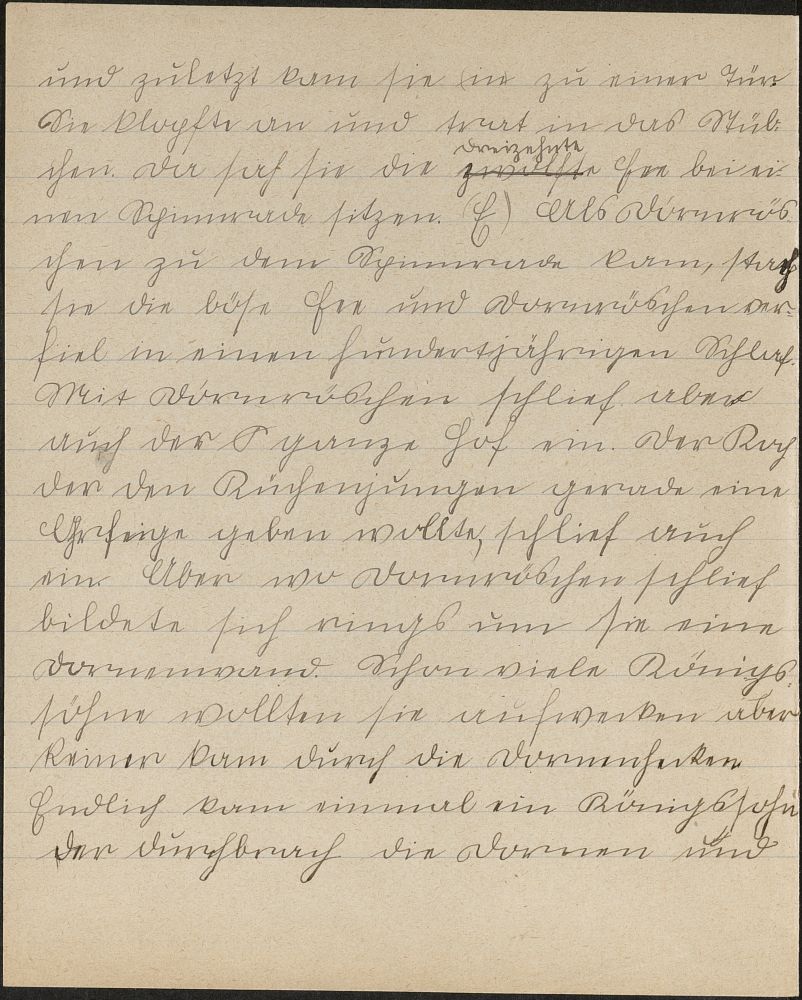 und zuletzt kam sie (in zu einer Tür.
Sie klopfte an und trat in das Stüb-
chen. Da sah sie die zwölfte dreizehnte Fee bei ei-
nen Spinnrade sitzen. (E) Als Dornrös-
chen zu dem Spinnrade kam, stach
sie die böse Fee und Dornröschen ver-
fiel in einen hundertjährigen Schlaf.
Mit Dornröschen schlief aber
auch der S ganze Hof ein. Der Koch
der den Küchenjungen gerade eine
Ohrfeige geben wollte, schlief auch
ein. Aber wo Dornröschen schlief
bildete sich rings um sie eine
Dornenwand. Schon viele Königs-
söhne wollten sie aufwecken aber
keiner kam durch die Dornenhecken
Endlich kam einmal ein Königssohn
der durchbrach die Dornen und